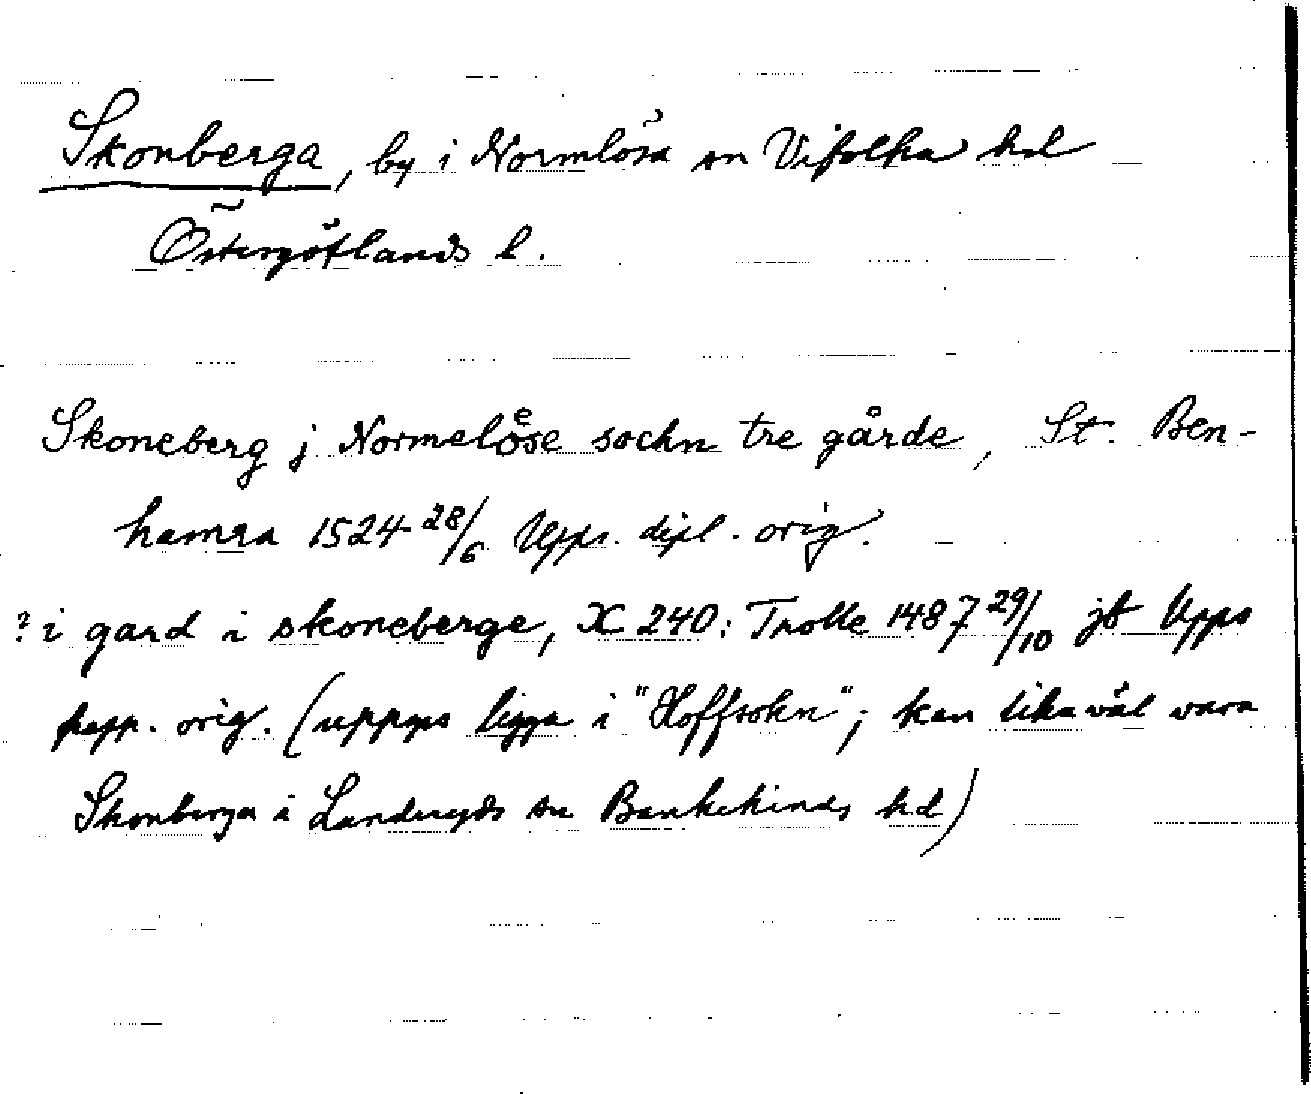 Skonberga, by i Normlösa sn Vifolka hd
Östergötlands l.
Skoneberg j Normelo̊ͤse sochn tre gårde, St. Ben-
hamra 1524 28/6 Upps. dipl. orig.
? i gard i skoneberge, X 240: Trolle 1487 29/10 jb Upps
papp. orig. (uppges ligga i "Hoffsokn"; kan lika väl vara
Skonberga i Landeryds sn Bankekinds hd)